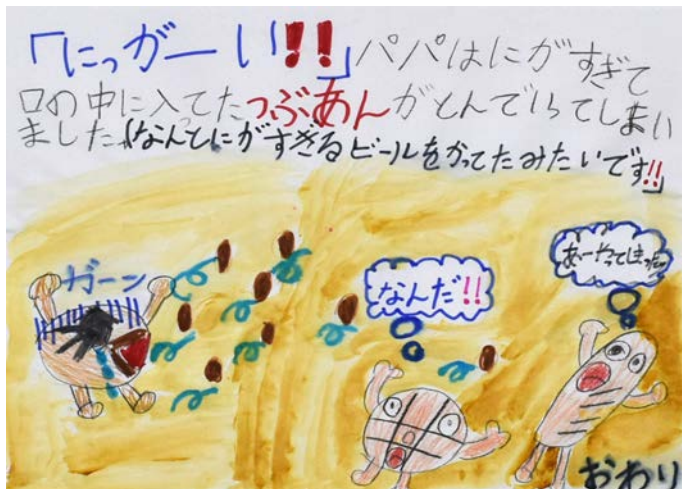 「にっがーい!!」パパはにがすぎて
口の中に入ってたつぶあんがとんでいってしまい
ました。(なんとにがすぎるビールをかってたみたいです!!」
ガーン
なんだ!!
あーやってしまった
おわり